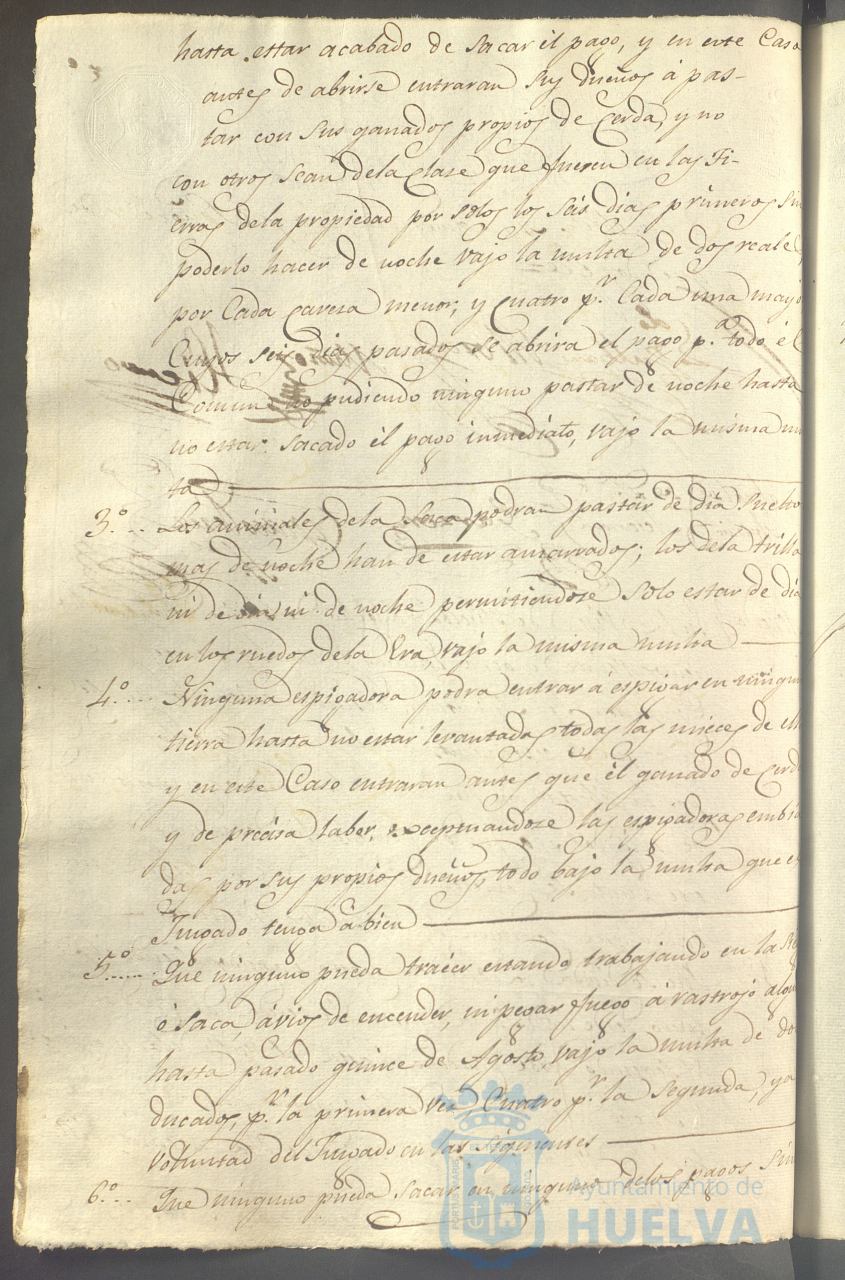 hasta estar acabado de sacar él pago, y en este Caso
antes de abrirse entraran sus dueños á pas-
tar con sus ganados propios de Cerda, y no
con otros sean dela Clase que fueren en las Ti-
erras dela propiedad por solos los séis dias primeros sin
poderlo hacer de noche vajo la multa de dos reales
por Cada Caveza menor, y Cuatro p.r Cada una mayo
Cuyos seis Dias pasados se abrira el pago p.a todo él
Comun no pudiendo ninguno pastar de noche hasta
no estar sacado él pago inmediato, vajo la misma mu
ta
3.º Los animales dela Saca podran pastar de dia suelto
mas de noche han de estar amarrados; los dela trilla
ni de dia ni de noche permitiendose solo estar de dia
en los ruedos dela Era, vajo la misma multa
4.º Ninguna espigadora podra entrar á espigar en ningun
tierra hasta no estar levantadas todas las mieces de ell
y en este Caso entraran antes que él ganado de Cerd
y de precisa labor, exceptuandose las espigadoras embia
das por sus propios dueños, todo bajo la multa que e
Juzgado tenga á bien
5.º Que ninguno pueda traéer estando trabajando en la
ó saca, ávios de encender, ni pegar fuego á rastrojo algu
hasta pasado quince de Agosto, vajo la multa de do
ducados, p.r la primera vez Cuatro p.r la segunda, y a
voluntad del Juzgado en las siguientes
6.º Que ninguno pueda sacar en ninguno delos pagos sin
Ayuntamiento de
HUELVA